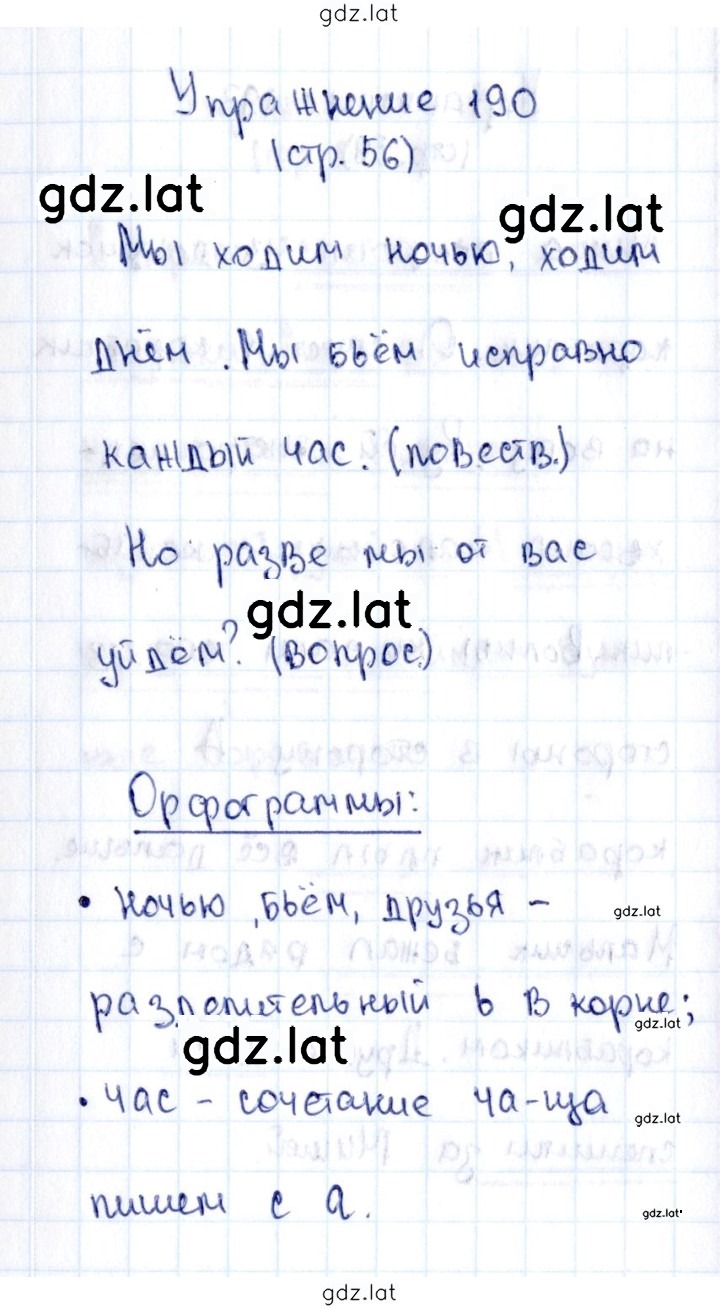 gdz.lat
Упражнение 190
(стр. 56)
gdz.lat
gdz.lat
Мы ходим ночью, ходим
днём. Мы бьём исправно
каждый час. (повеств.)
Но разве мы от вас
gdz.lat
уйдём? (вопрос.)
Орфограммы:
• ночью, бьём, друзья –
gdz.lat
разделительный ь в корне;
gdz.lat
gdz.lat
• час – сочетание ча-ща
gdz.lat
пишем с а.
gdz.lat
gdz.lat